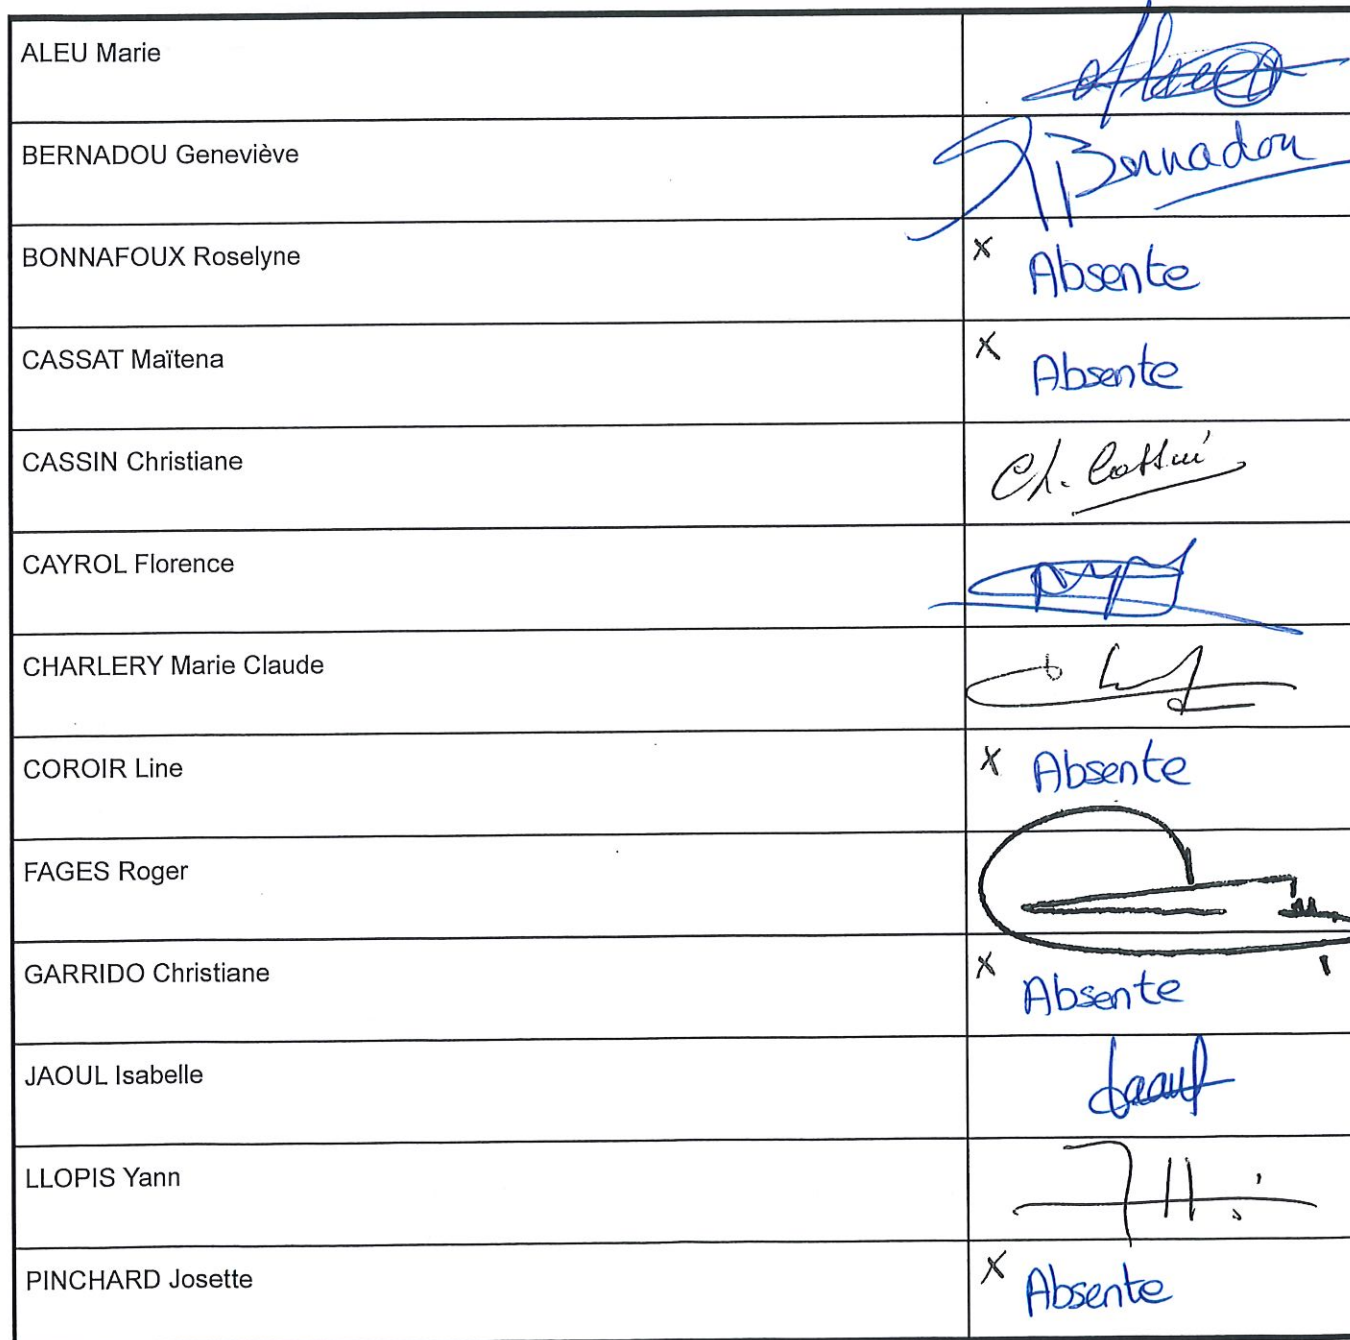 ALEU Marie
BERNADOU Geneviève Bernadou
BONNAFOUX Roselyne x Absente
CASSAT Maïtena x Absente
CASSIN Christiane Ch. Cassin
CAYROL Florence
CHARLERY Marie Claude
COROIR Line x Absente
FAGES Roger
GARRIDO Christiane x Absente
JAOUL Isabelle Jaoul
LLOPIS Yann
PINCHARD Josette x Absente